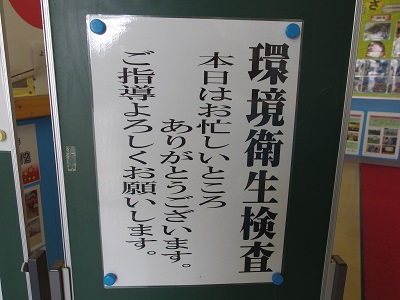 環境衛生検査
本日はお忙しいところ
ありがとうございます。
ご指導よろしくお願いします。